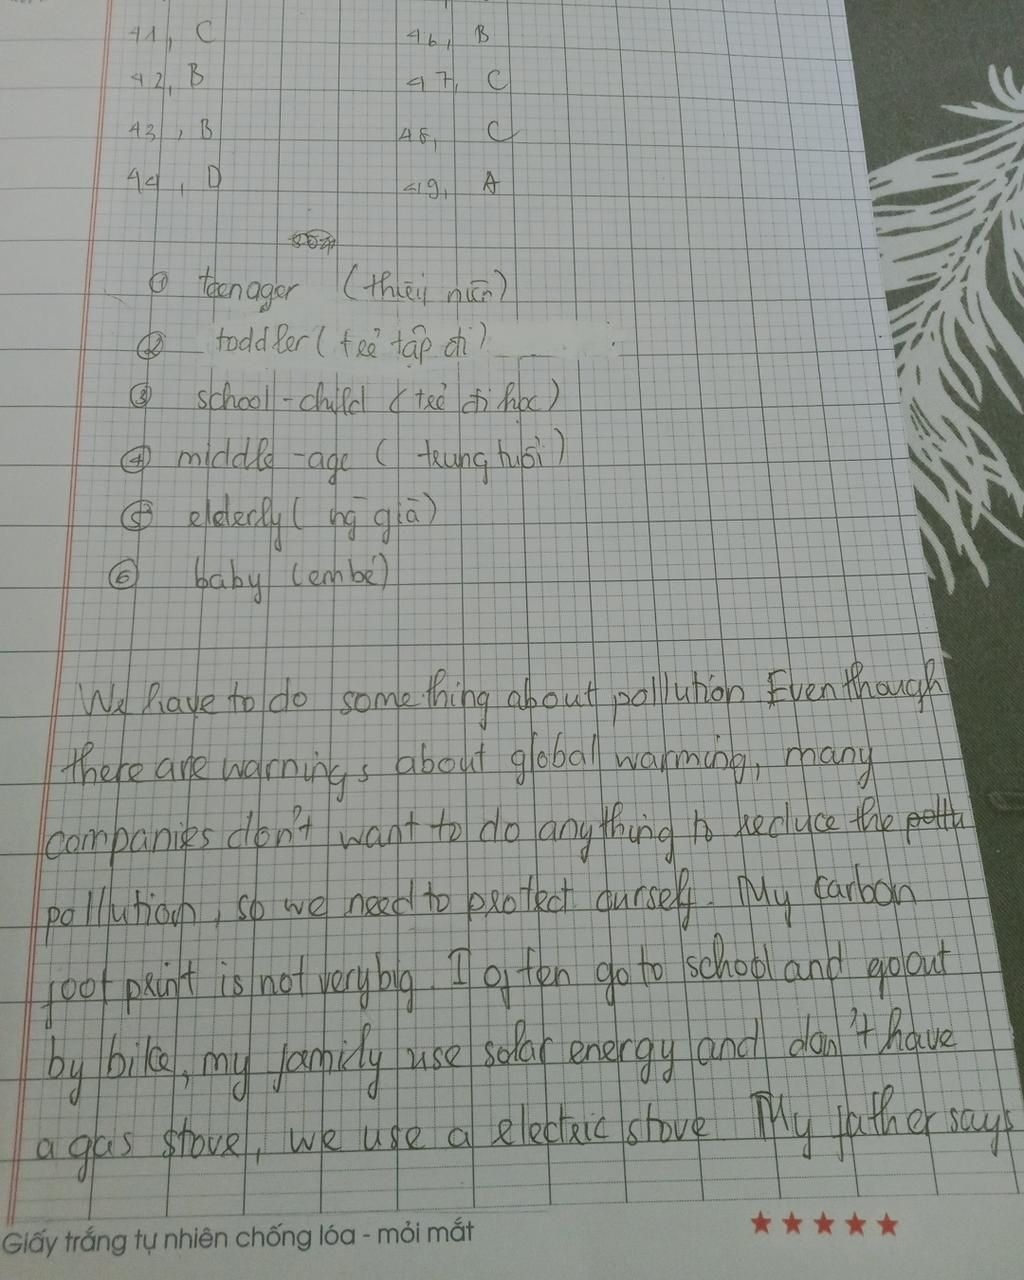 41, C 46, B
42, B 47, C
43, B 48, C
44, D 49, A
① teenager (thiếu niên)
② toddler (trẻ tập đi)
③ school-child (trẻ đi học)
④ middle-age (trung tuổi)
⑤ elderly (ng già)
⑥ baby (em bé)
We have to do something about pollution Even though
there are warnings about global warming, many
companies don't want to do anything to reduce the pollu
pollution, so we need to protect ourself. My carbon
foot print is not very big. I often go to school and go out
by bike, my family use solar energy and don't have
a gas stove, we use a electric stove My father says
Giấy trắng tự nhiên chống lóa - mỏi mắt